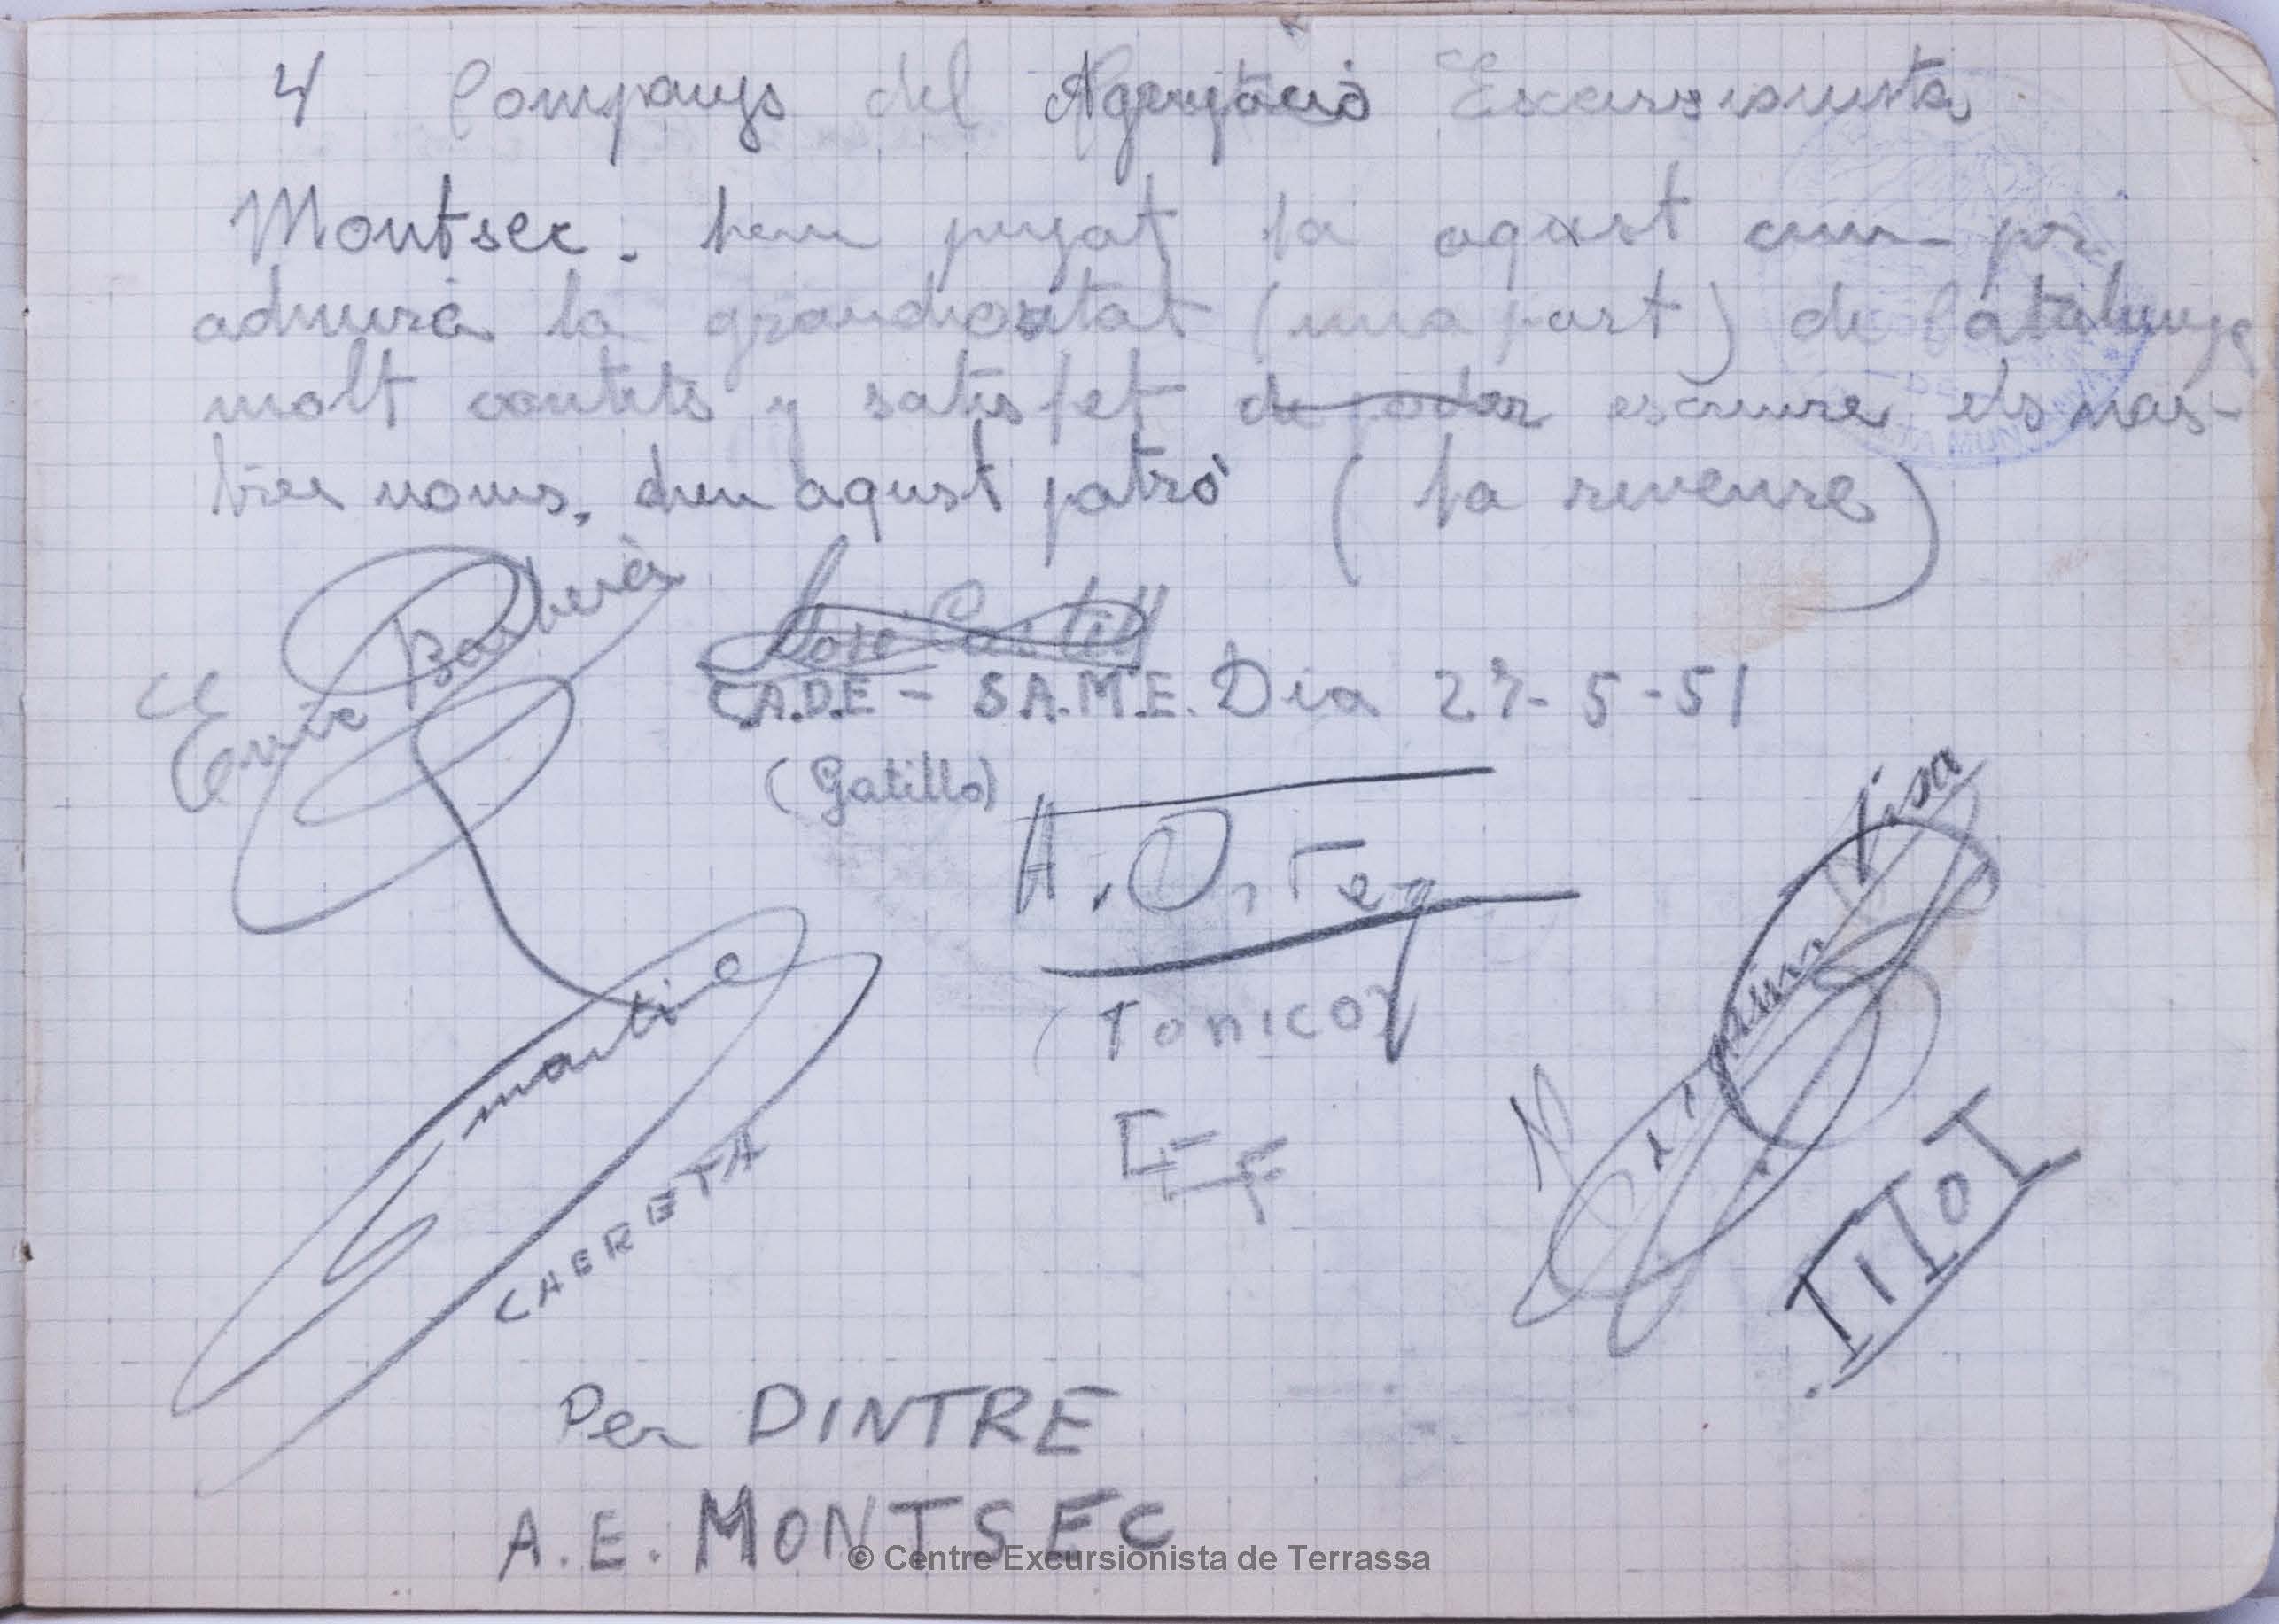 4 Companys del Agrupació Excursionista
Montsec. hem pujat ha aquest cim per
admirà la grandiositat (una part) de Catalunya
molt contets y satisfet de poder escriure els nos-
tres noms. dieu aquest patró (ha reveure)
Enric Barberà
José Castell
C.A.D.E - S.A.M.E. Dia 27-5-51
(Gatillo)
A. Orteg
(Tonico)
martine
CABRETA
TITOT
Per DINTRE
A.E. MONTSEC
© Centre Excursionista de Terrassa